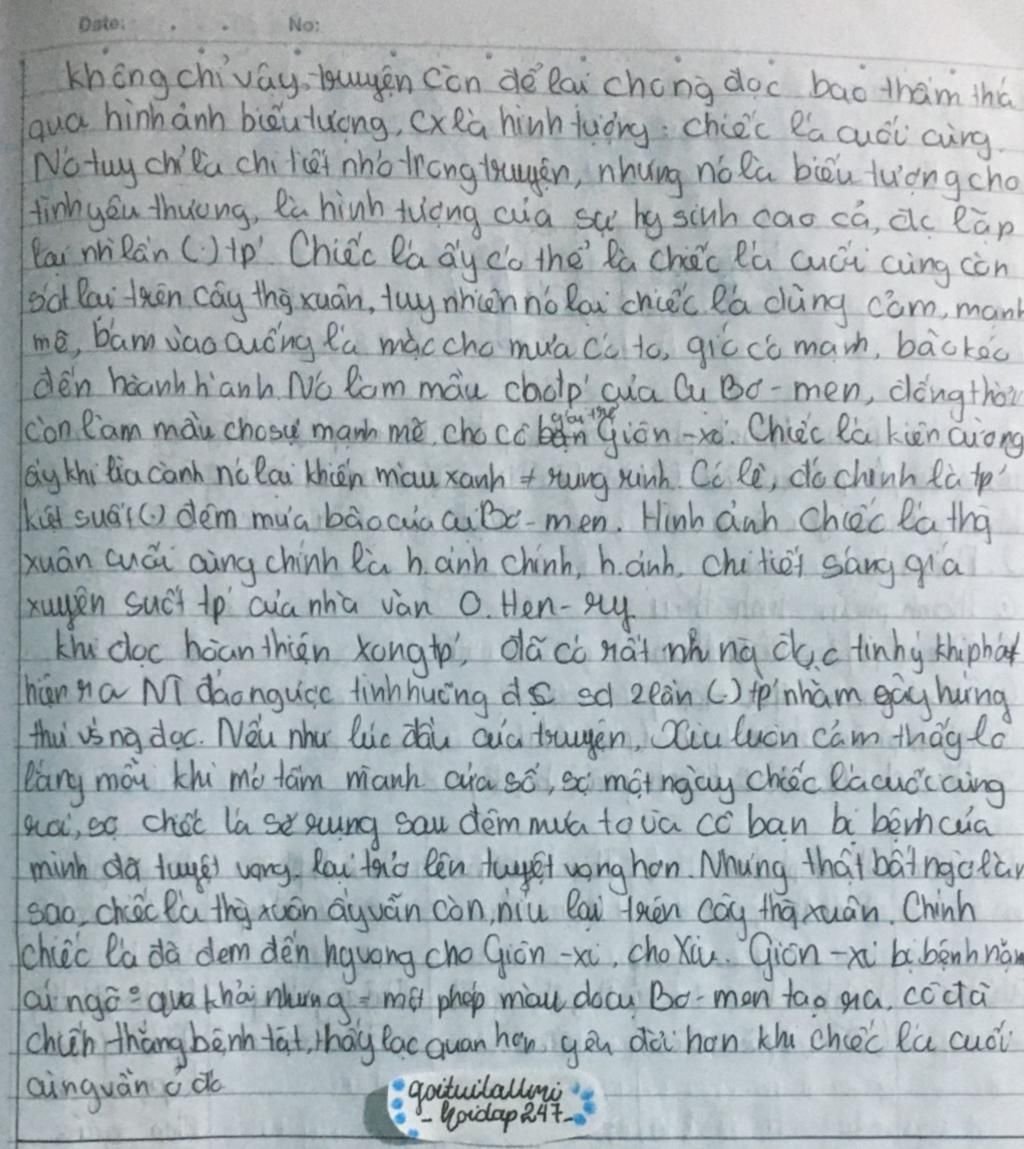 Date: . . No:
không chỉ vậy, truyện còn để lại cho ng đọc bao thấm thía
qua hình ảnh biểu tượng, cx là hình tượng: chiếc lá cuối cùng.
Nó tuy chỉ là chi tiết nhỏ trong truyện, nhưng nó là biểu tượng cho
tình yêu thương, là hình tượng của sự hy sinh cao cả, đc lặp
lại nh lần (.) tp'. Chiếc lá ấy có thể là chiếc lá cuối cùng còn
sót lại trên cây thg xuân, tuy nhiên nó lại chiếc lá dũng cảm, mạnh
mẽ, bám vào cuống lá mặc cho mưa có to, gió có mạnh, bão kéo
đến hoành hành. Nó làm mẫu cho tp' của Cụ Bơ-men, đồng thời
còn làm mẫu cho sự mạnh mẽ, cho cô gái trẻ Giôn-xi. Chiếc lá kiên cường
ấy khi lìa cành nó lại khiến màu xanh rung rinh. Có lẽ, đó chính là tp'
kiệt suất (.) đêm mưa bão của cụ Bơ-men. Hình ảnh chiếc lá thg
xuân cuối cùng chính là h.ảnh chính, h.ảnh, chi tiết sáng giá
xuyên suốt tp' của nhà văn O. Hen-ry.
khi đọc hoàn thiện xong tp', đã có rất nh ng đọc tinh ý khi phát
hiện ra NT đảo ngược tình huống đc sd 2 lần (.) tp' nhằm gây hứng
thú vs ng đọc. Nếu như lúc đầu của truyện, Xiu luôn cảm thấy lo
lắng mỗi khi mở tấm mành cửa sổ, sợ một ngày chiếc lá cuối cùng
rơi, sợ chiếc lá sẽ rụng sau đêm mưa to và cô bạn bị bệnh của
mình đã tuyệt vọng, lại trở lên tuyệt vọng hơn. Nhưng thật bất ngờ làm
sao, chiếc lá thg xuân ấy vẫn còn, níu lại trên cây thg xuân. Chính
chiếc lá đã đem đến hy vọng cho Giôn-xi, cho Xiu. Giôn-xi bị bệnh nặng
ai ngỡ qua khỏi nhưng = một phép màu do cụ Bơ-men tạo ra, cô đã
chiến thắng bệnh tật, thấy lạc quan hơn, yêu đời hơn khi chiếc lá cuối
cùng vẫn ở đó
goituilallimi
- Hoidap247 -